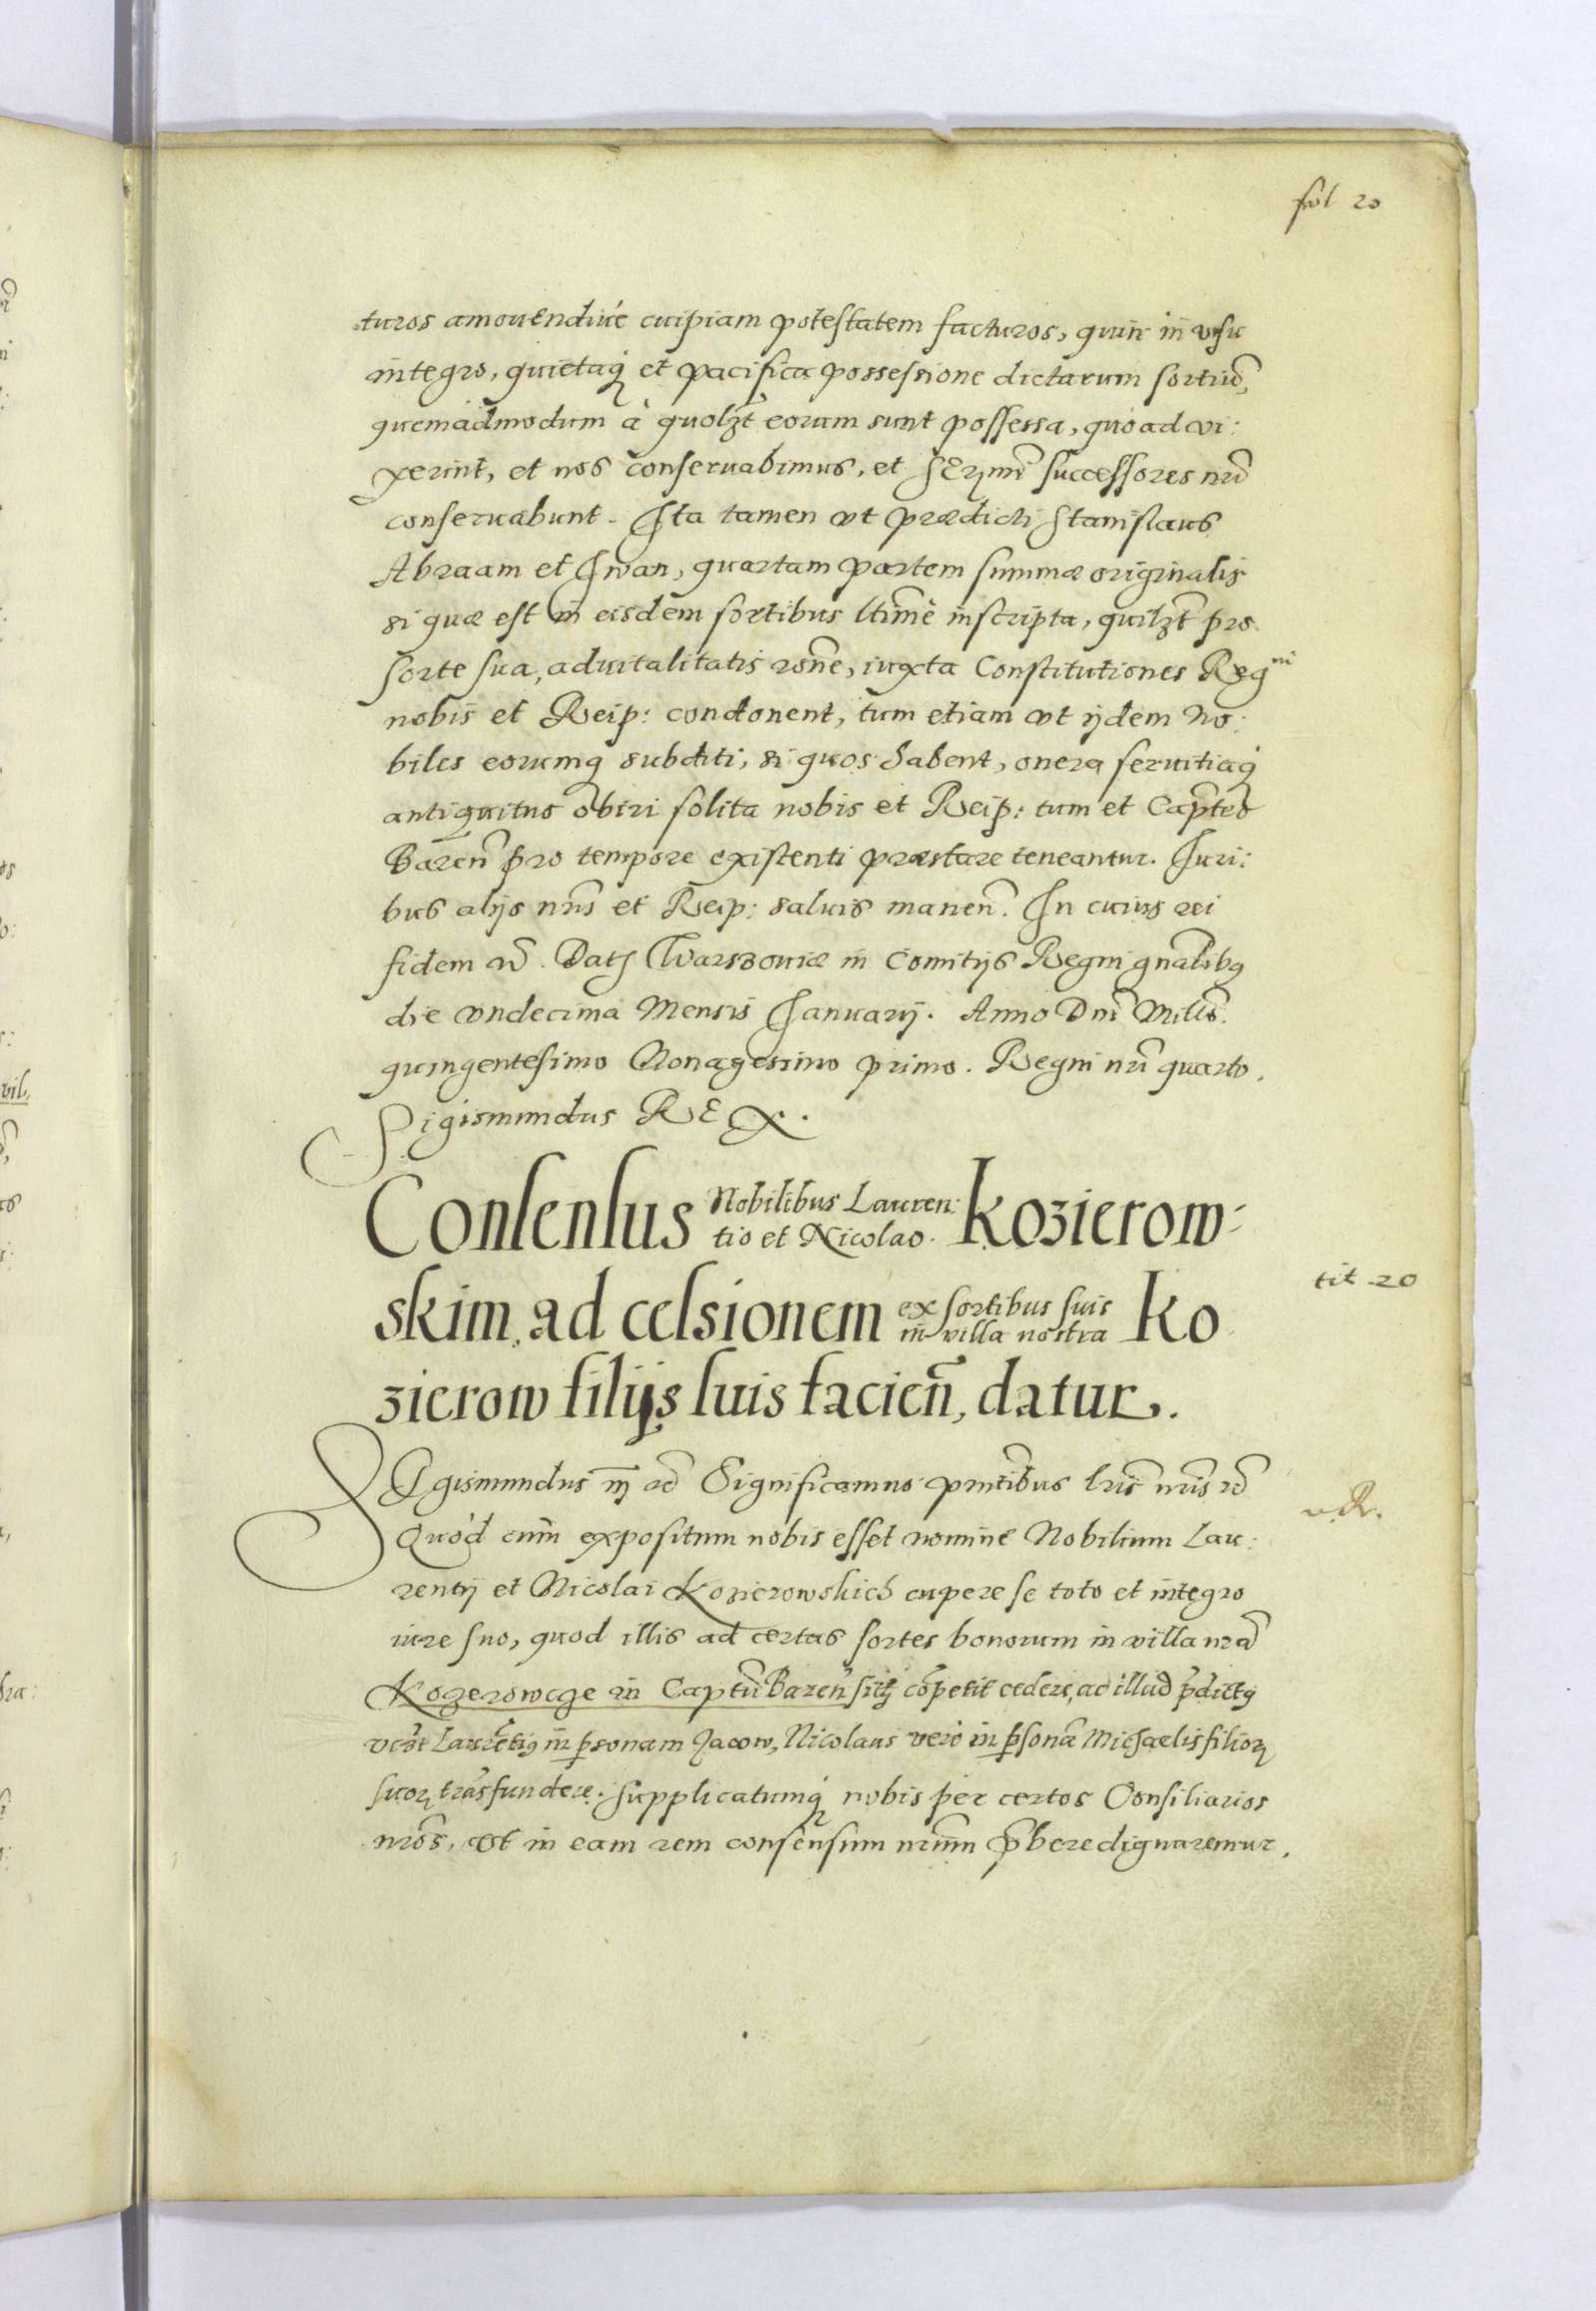 fol 20
turos amouendiue cuipiam potestatem facturos, quin in vsu
integro, quietaq́ et pacifica possessione dictarum sortiũ,
quemadmodum à quolꝫt eorum sunt possessa, quoad vi:
xerint, et nos conseruabimus, et Serñmi successores nr̃i
conseruabunt. Ita tamen vt prædicti Stanislaus
Abraam et Iwan, quartam partem summæ originalis
si quæ est in eisdem sortibus ltim̃e inscripta, quilꝫt pro
sorte sua, aduitalitatis rõne, iuxta Constitutiones Regni
nobis et Reip: condonent, tum etiam vt ijdem No:
biles eorumq subditi, si quos habent, onera seruitiaq́
antiquitus obiri solita nobis et Reip: tum et Capteo
Bareñ pro tempore existenti præstare teneantur. Iuri:
bus alijs nr̃is et Reip: saluis maneñ. In cuius rei
fidem etc̃. Datꝭ Warszouiæ in Comitijs Regni gñalibꝰ
die vndecima Mensis Ianuarij. Anno Dnĩ Milĩo.
quingentesimo Nonagesimo primo. Regni nr̃i quarto.
Sigismundus REX.
Consensus Nobilibus Lauren:
tio et Nicolao. Kozierow:
skim, ad cessionem ex sortibus suis
in villa nostra Ko
zierow filijs suis facieñ, datur.
tit 20
SIgismundus III etc̃ Significamus pñtibus lr̃is nr̃is etc̃
Quód cum expositum nobis esset nomine Nobilium Lau:
rentij et Nicolai Kozierowskich cupere se toto et integro
iure suo, quod illis ad certas sortes bonorum in villa nr̃a
Kozerowcze in Captũ Bareñ sitꝭ cõpetit cedere, ac illud p̃dictꝰ
Laurẽtiꝰ in p̱sonam Jacow, Nicolaus vero in p̱sonã Michaelis filioꝝ
suoꝝ trãsfundere. Supplicatumq́ nobis per certos Consiliarios
nr̃os, vt in eam rem consensum nr̃um p̃bere dignaremur.